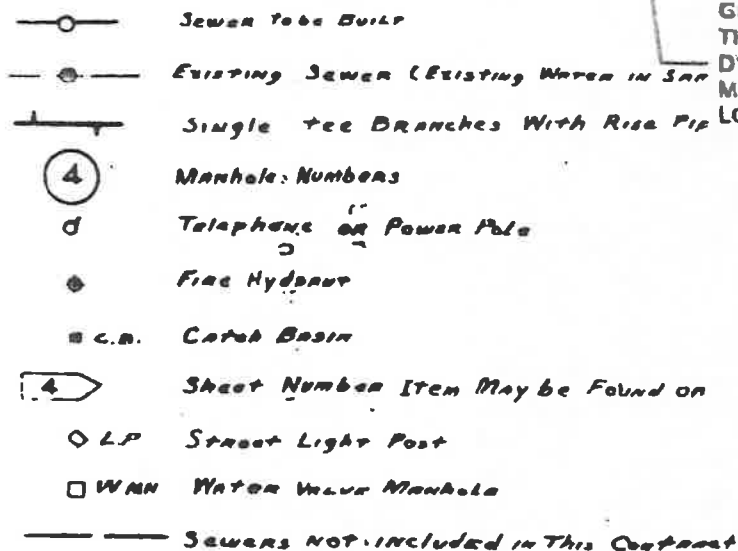 Sewer to be Built
Existing Sewer (Existing Water in San
Single tee Branches With Rise Pip
4 Manhole Numbers
Telephone or Power Pole
Fire Hydrant
C.B. Catch Basin
4 Sheet Number Item May be Found on
LP Street Light Post
WMH Water Valve Manhole
Sewers Not Included in This Contract